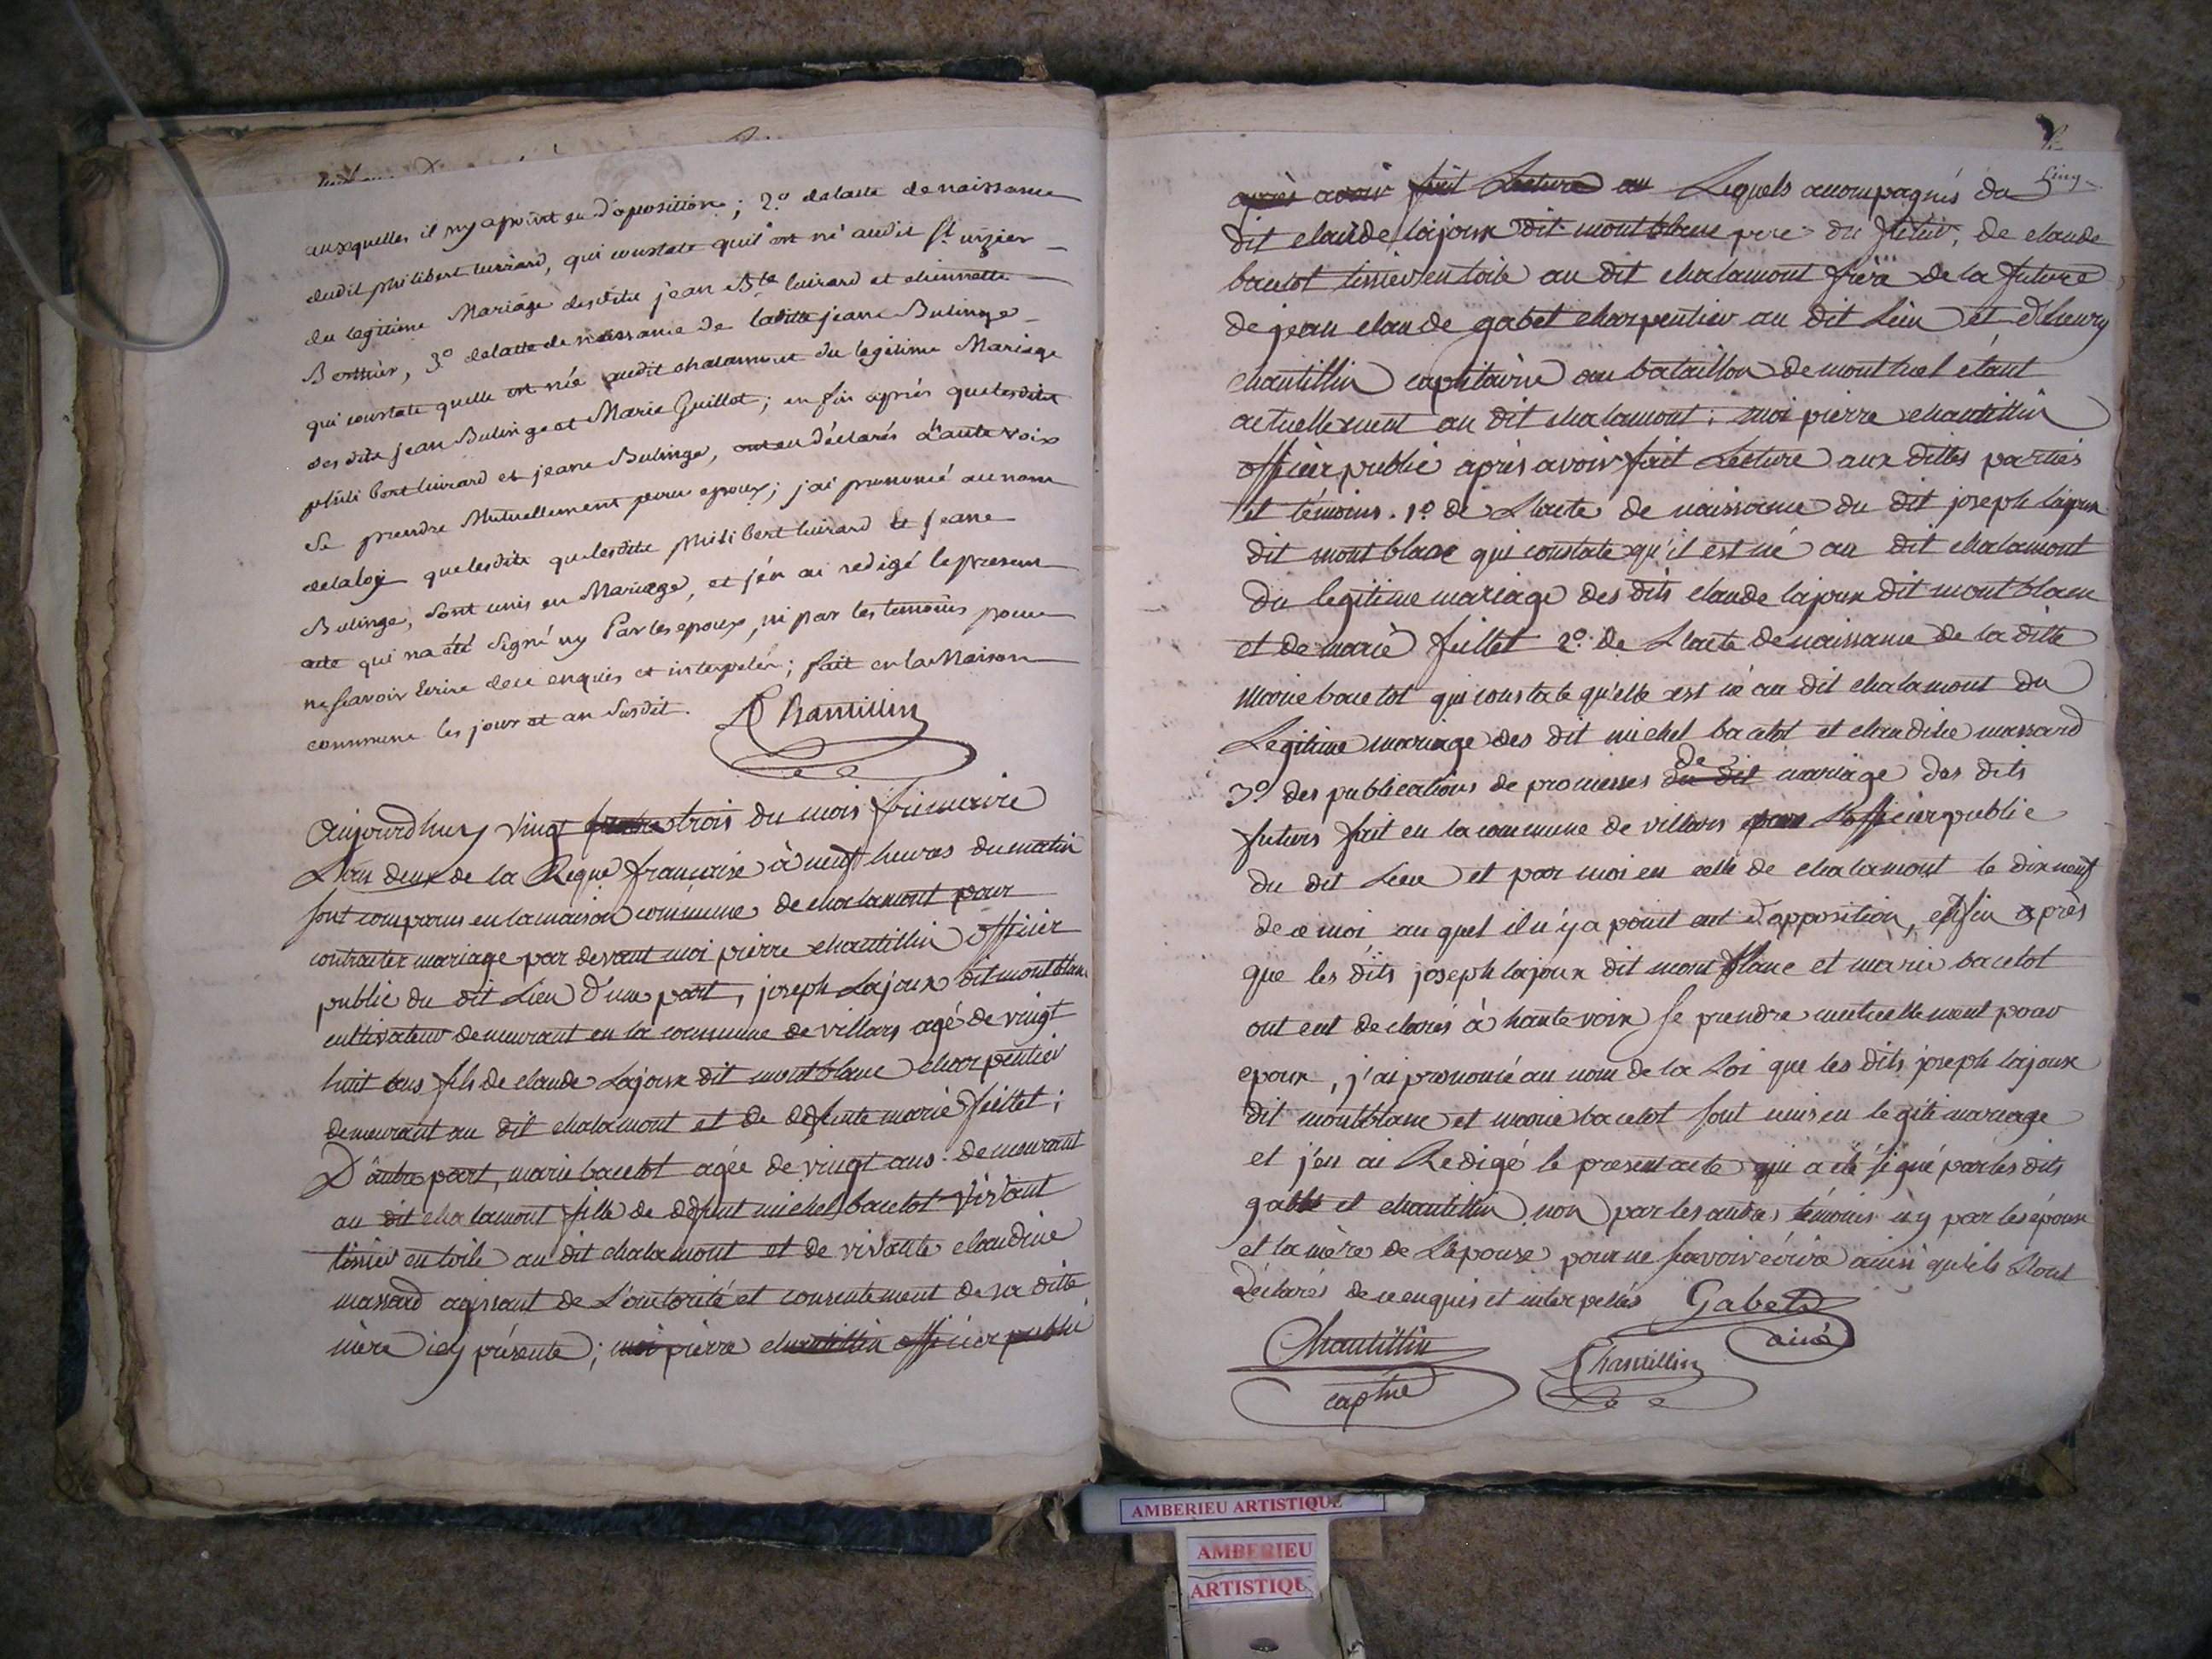 auxquelles il ny a point eu d'oposition; 2.° de lacte de naissance
dudit philibert luirard, qui constate quil est né audit St. nizier
du legitime Mariage desdits jean Bte luirard et etiennette
Berthier, 3.° de lacte de naissance de ladite jeane Bulinge
qui constate quelle est née audit chalamont du legitime Mariage
desdits jean Bulinge et Marie Guillot; enfin après que lesdits
philibert luirard et jeane Bulinge, ont eu déclarés à haute voix
Se prendre Mutuellement pour epoux; j'ai prononcé au nom
de la loy que lesdits que lesdits philibert luirard et jeane
Bulinge, sont unis en Mariage, et j'en ai redigé le present
acte qui na été Signé ny Par les epoux, ni par les temoins pour
ne sçavoir Ecrire de ce enquis et interpelés; fait en la Maison
commune les jour et an Susdit. Chantillin
Aujourdhuy vingt quatre trois du mois frimaire
L'an deux de la Reque française à neuf heures du matin
sont comparus en la maison commune de chalamont pour
contracter mariage par devant moi pierre chantillin officier
public du dit Lieu d'une part, joseph Lajoux dit mont blanc
cultivateur demeurant en la commune de villars agé de vingt
huit ans fils de claude Lajoux dit mont blanc charpentier
demeurant au dit chalamont et de defunte marie feillet;
D'autre part, marie bacelot agée de vingt ans demeurant
au dit chalamont fille de defunt michel bacelot vivant
tissier en toile au dit chalamont et de vivante claudine
massard agissant de L'autorité et consentement de sa ditte
mère icy présente; moi pierre chantillin officier public
Cinq
après avoir fait Lecture au Lequels accompagnés du
dit claude lajoux dit mont blanc pere du futur, de claude
bacelot tissier en toile au dit chalamont frère de la future
de jean claude gabet charpentier au dit Lieu et d'
chantillin capitaine au bataillon de montluel étant
actuellement au dit chalamont; moi pierre chantillin
officier public après avoir fait Lecture aux dittes parties
et témoins. 1.° de L'acte de naissance du dit joseph lajoux
dit mont blanc qui constate qu'il est né au dit chalamont
du legitime mariage des dits claude lajoux dit mont blanc
et de marie feillet 2.° de L'acte de naissance de la ditte
marie bacelot qui constate qu'elle est né au dit chalamont du
Legitime mariage des dit michel bacelot et claudine massard
3.° des publications de promesses du dit de mariage des dits
futurs fait en la commune de villars par L'officier public
du dit Lieu et par moi en celle de chalamont le dix neuf
de ce moi auquel il n'y a point eut d'opposition, enfin après
que les dits joseph lajoux dit mont blanc et marie bacelot
ont eut declarés à haute voix se prendre mutuellement pour
epoux, j'ai prononcé au nom de la Loi que les dits joseph lajoux
dit montblanc et marie bacelot sont unis en legiti mariage
et j'en ai Redigé le present acte qui a été signé par les dits
gabet et chantillin non par les autres témoins ny par les époux
et la mère de L'épouse pour ne sçavoir écrire ainsi qu'ils L'ont
déclarés de ce enquis et interpellés Gabet
ainé
Chantillin Chantillin
captne
AMBERIEU ARTISTIQUE
AMBERIEU
ARTISTIQU